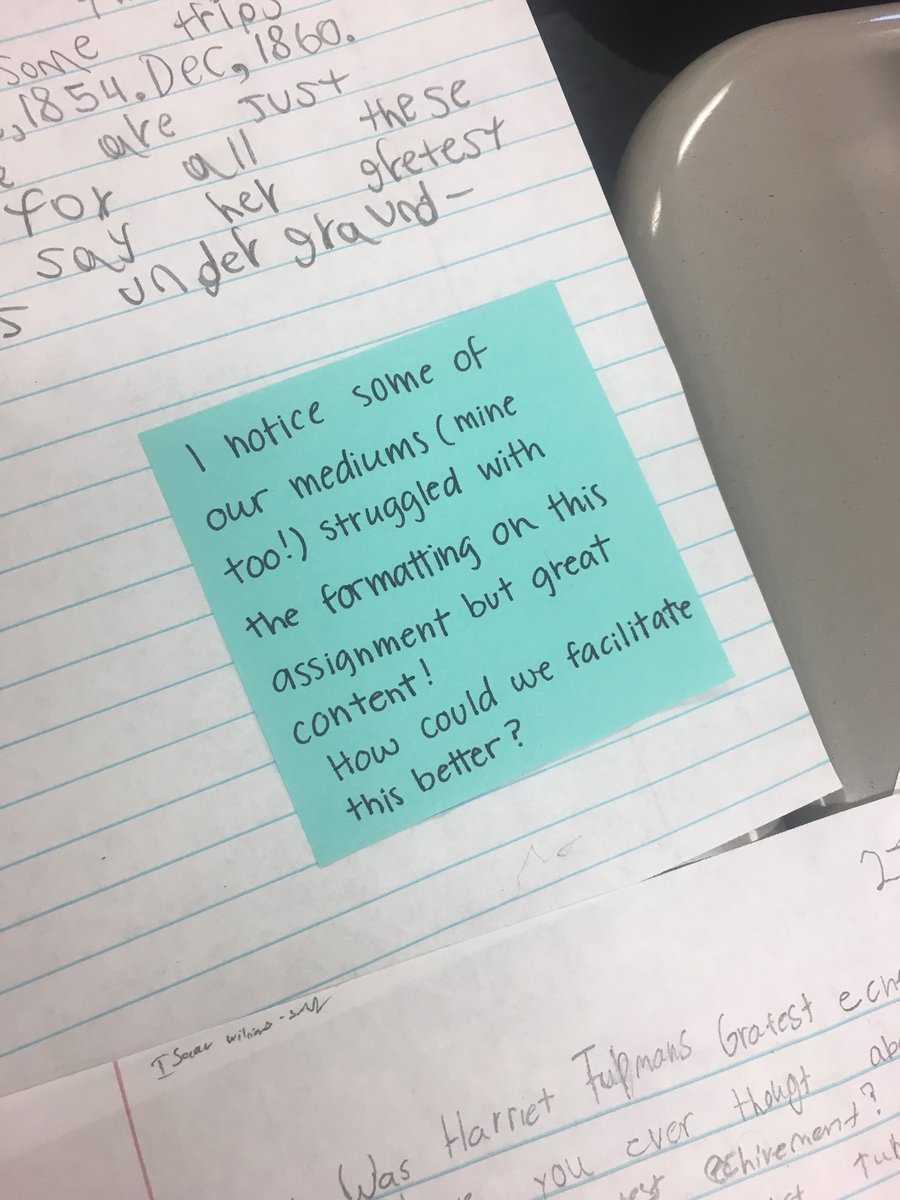 some trips
, 1854. Dec, 1860.
are just
for all these
say her gretest
s under graund-
I notice some of
our mediums (mine
too!) struggled with
the formatting on this
assignment but great
content!
How could we facilitate
this better?
Was Harriet Tubmans Gratest
you ever thougt
echivement?